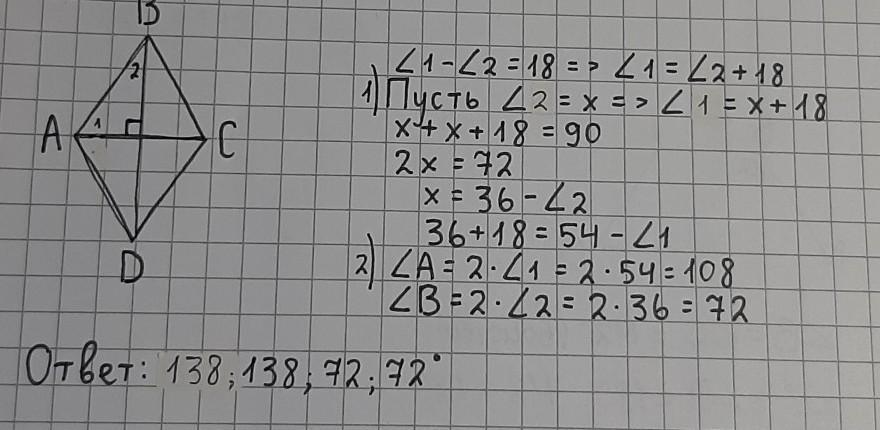 B
2
A 1 C
D
∠1-∠2=18=> ∠1=∠2+18
1) Пусть ∠2=x=> ∠1=x+18
x+x+18=90
2x=72
x=36-∠2
36+18=54-∠1
2) ∠A=2·∠1=2·54=108
∠B=2·∠2=2·36=72
Ответ: 138; 138; 72; 72°